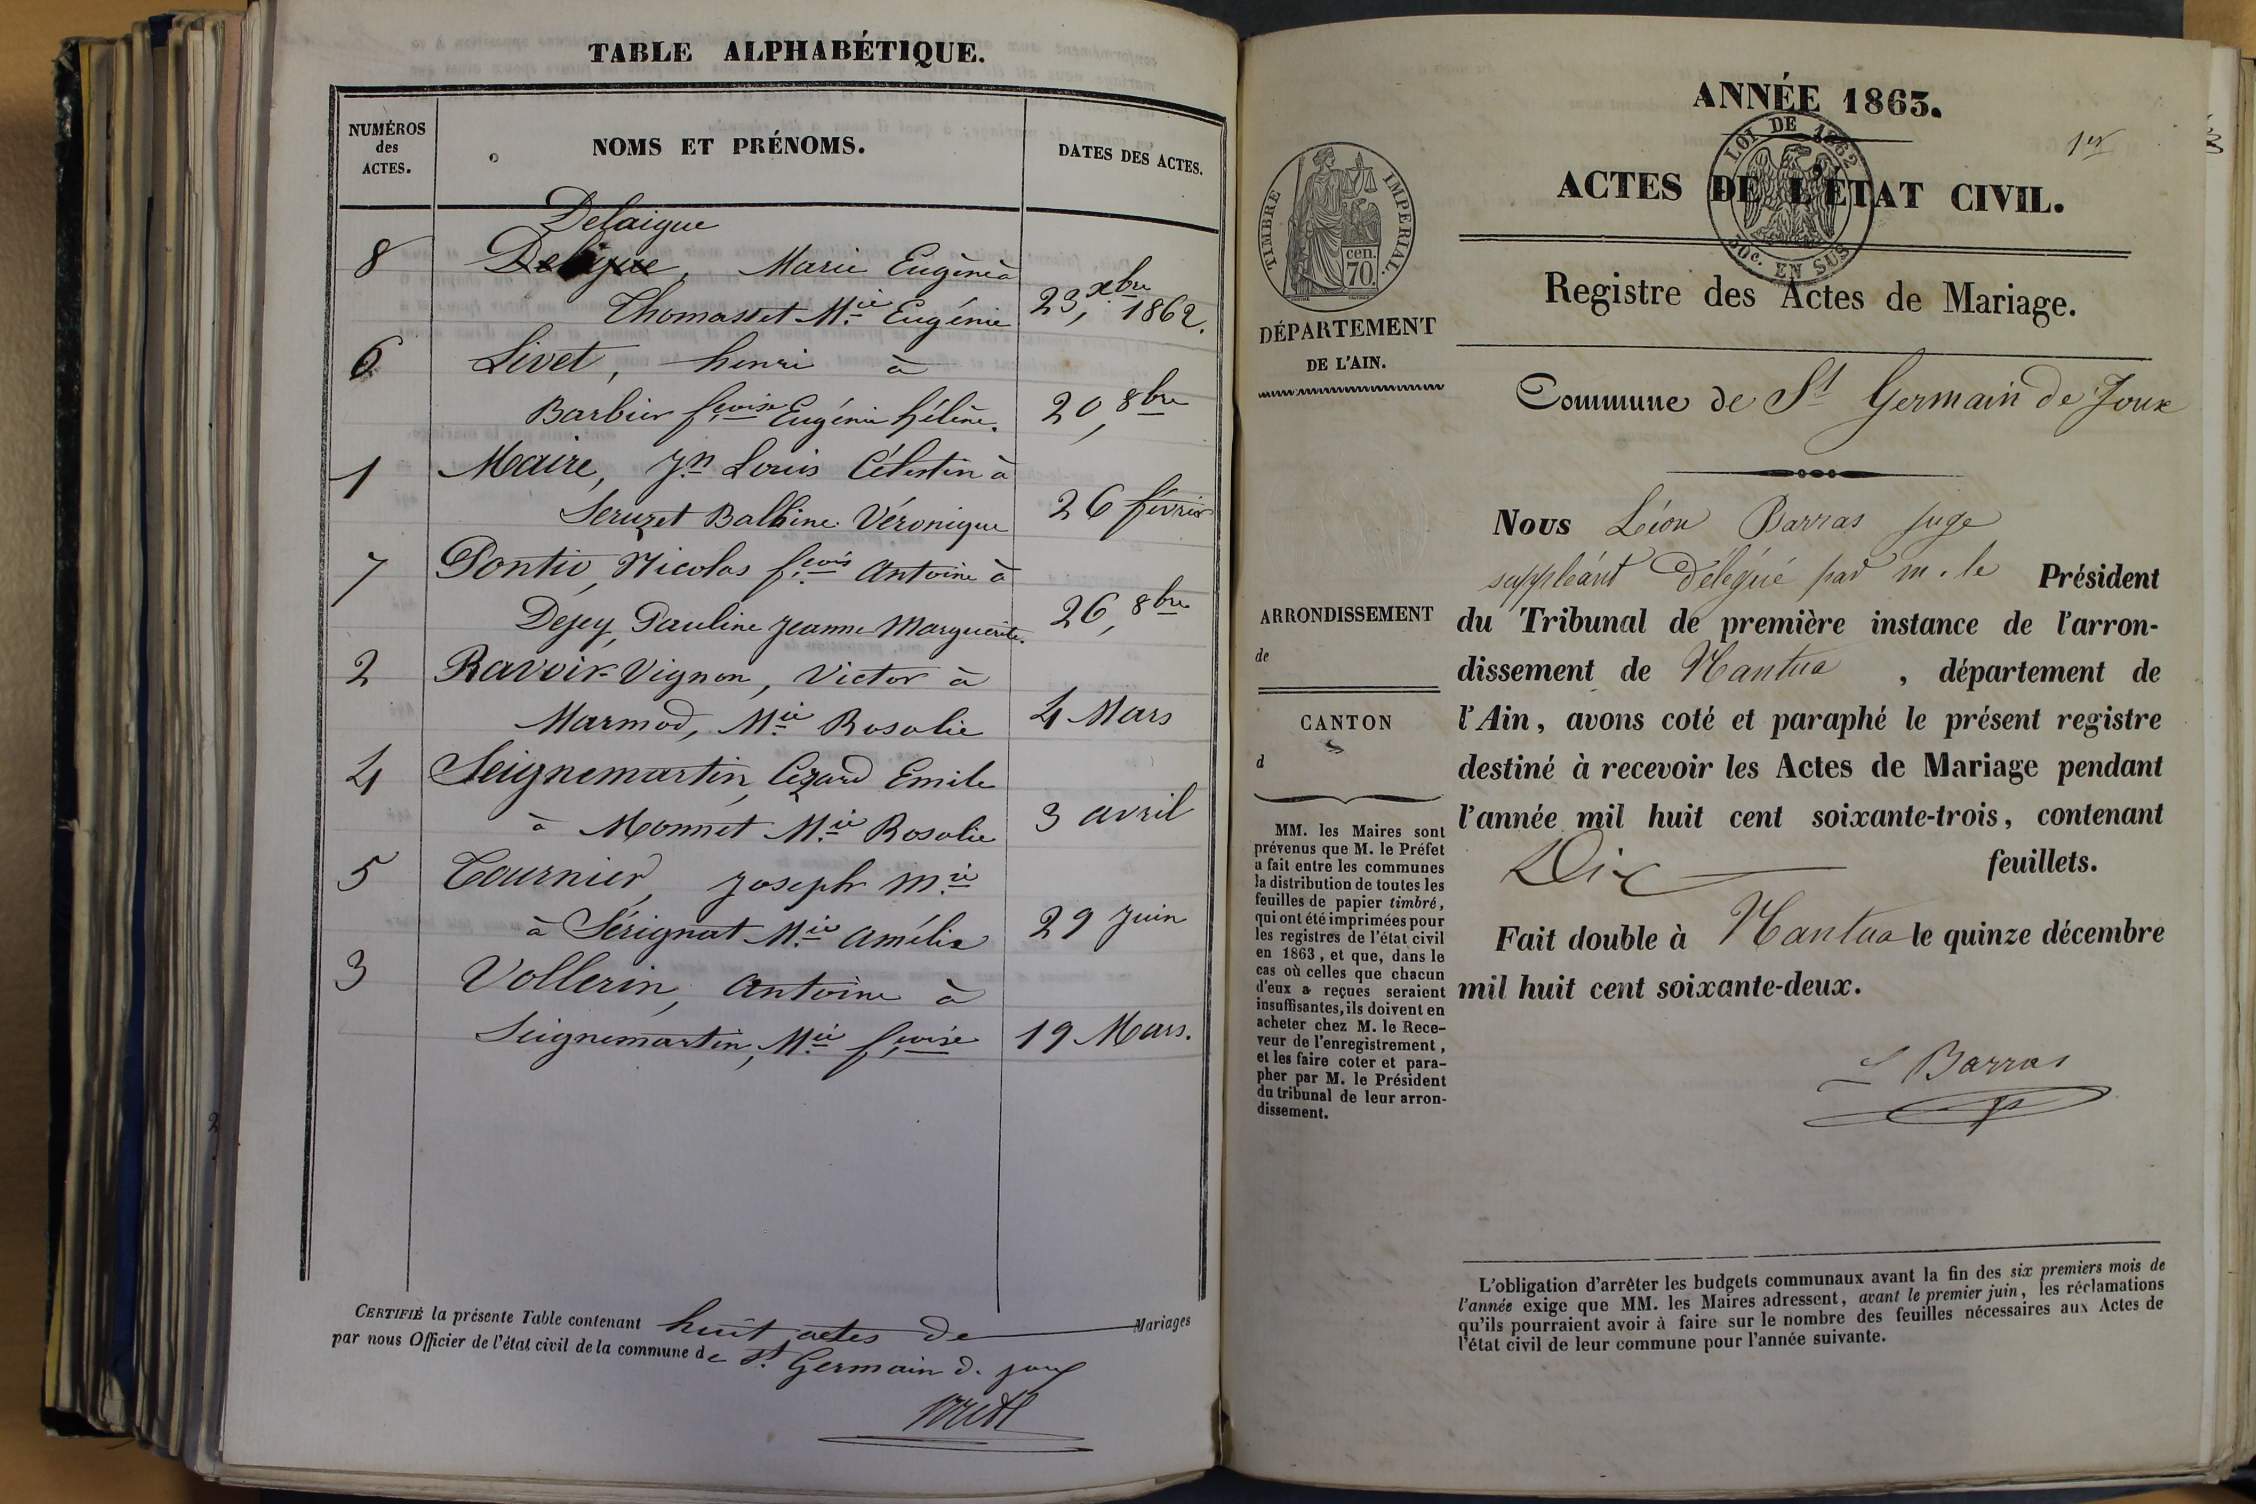 TABLE ALPHABÉTIQUE.
NUMÉROS
des
ACTES.
NOMS ET PRÉNOMS.
DATES DES ACTES.
Delaigue
8 Marie Eugène à
Thomasset M.ie Eugénie 23, xbre 1862.
6 Livet, henri à
Barbier f.çoise Eugénie hélène. 20, 8bre
1 Maire, Jn Louis Célestin à
Seruzet Balbine Véronique 26 février
7 Nicolas f.çois Antoine à
Dejey, Pauline Jeanne Marguerite. 26, 8bre
2 Ravoir-Vignon, Victor à
Marmod, M.ie Rosalie 4 Mars
4 Seignemartin, Cézard Emile
à Monnet M.ie Rosalie 3 avril
5 Tournier, Joseph M.ie
à Sérignat M.ie Amélie 29 Juin
3 Vollerin, Antoine à
Seignemartin, M.ie f.çoise 19 Mars.
CERTIFIÉ la présente Table contenant huit actes de Mariages
par nous Officier de l'état civil de la commune de St. Germain d. joux
ANNÉE 1863.
1er
LOI DE 1862
50c. EN SUS
ACTES DE L'ÉTAT CIVIL.
Registre des Actes de Mariage.
TIMBRE IMPÉRIAL.
cen.
70.
DÉPARTEMENT
DE L'AIN.
Commune de St Germain de Joux
ARRONDISSEMENT
de
CANTON
d
MM. les Maires sont
prévenus que M. le Préfet
a fait entre les communes
la distribution de toutes les
feuilles de papier timbré,
qui ont été imprimées pour
les registres de l'état civil
en 1863, et que, dans le
cas où celles que chacun
d'eux a reçues seraient
insuffisantes, ils doivent en
acheter chez M. le Rece-
veur de l'enregistrement,
et les faire coter et para-
pher par M. le Président
du tribunal de leur arron-
dissement.
Nous Léon Barras juge
suppléant délégué par m. le Président
du Tribunal de première instance de l'arron-
dissement de Nantua, département de
l'Ain, avons coté et paraphé le présent registre
destiné à recevoir les Actes de Mariage pendant
l'année mil huit cent soixante-trois, contenant
Dix feuillets.
Fait double à Nantua le quinze décembre
mil huit cent soixante-deux.
L Barras
L'obligation d'arrêter les budgets communaux avant la fin des six premiers mois de
l'année exige que MM. les Maires adressent, avant le premier juin, les réclamations
qu'ils pourraient avoir à faire sur le nombre des feuilles nécessaires aux Actes de
l'état civil de leur commune pour l'année suivante.